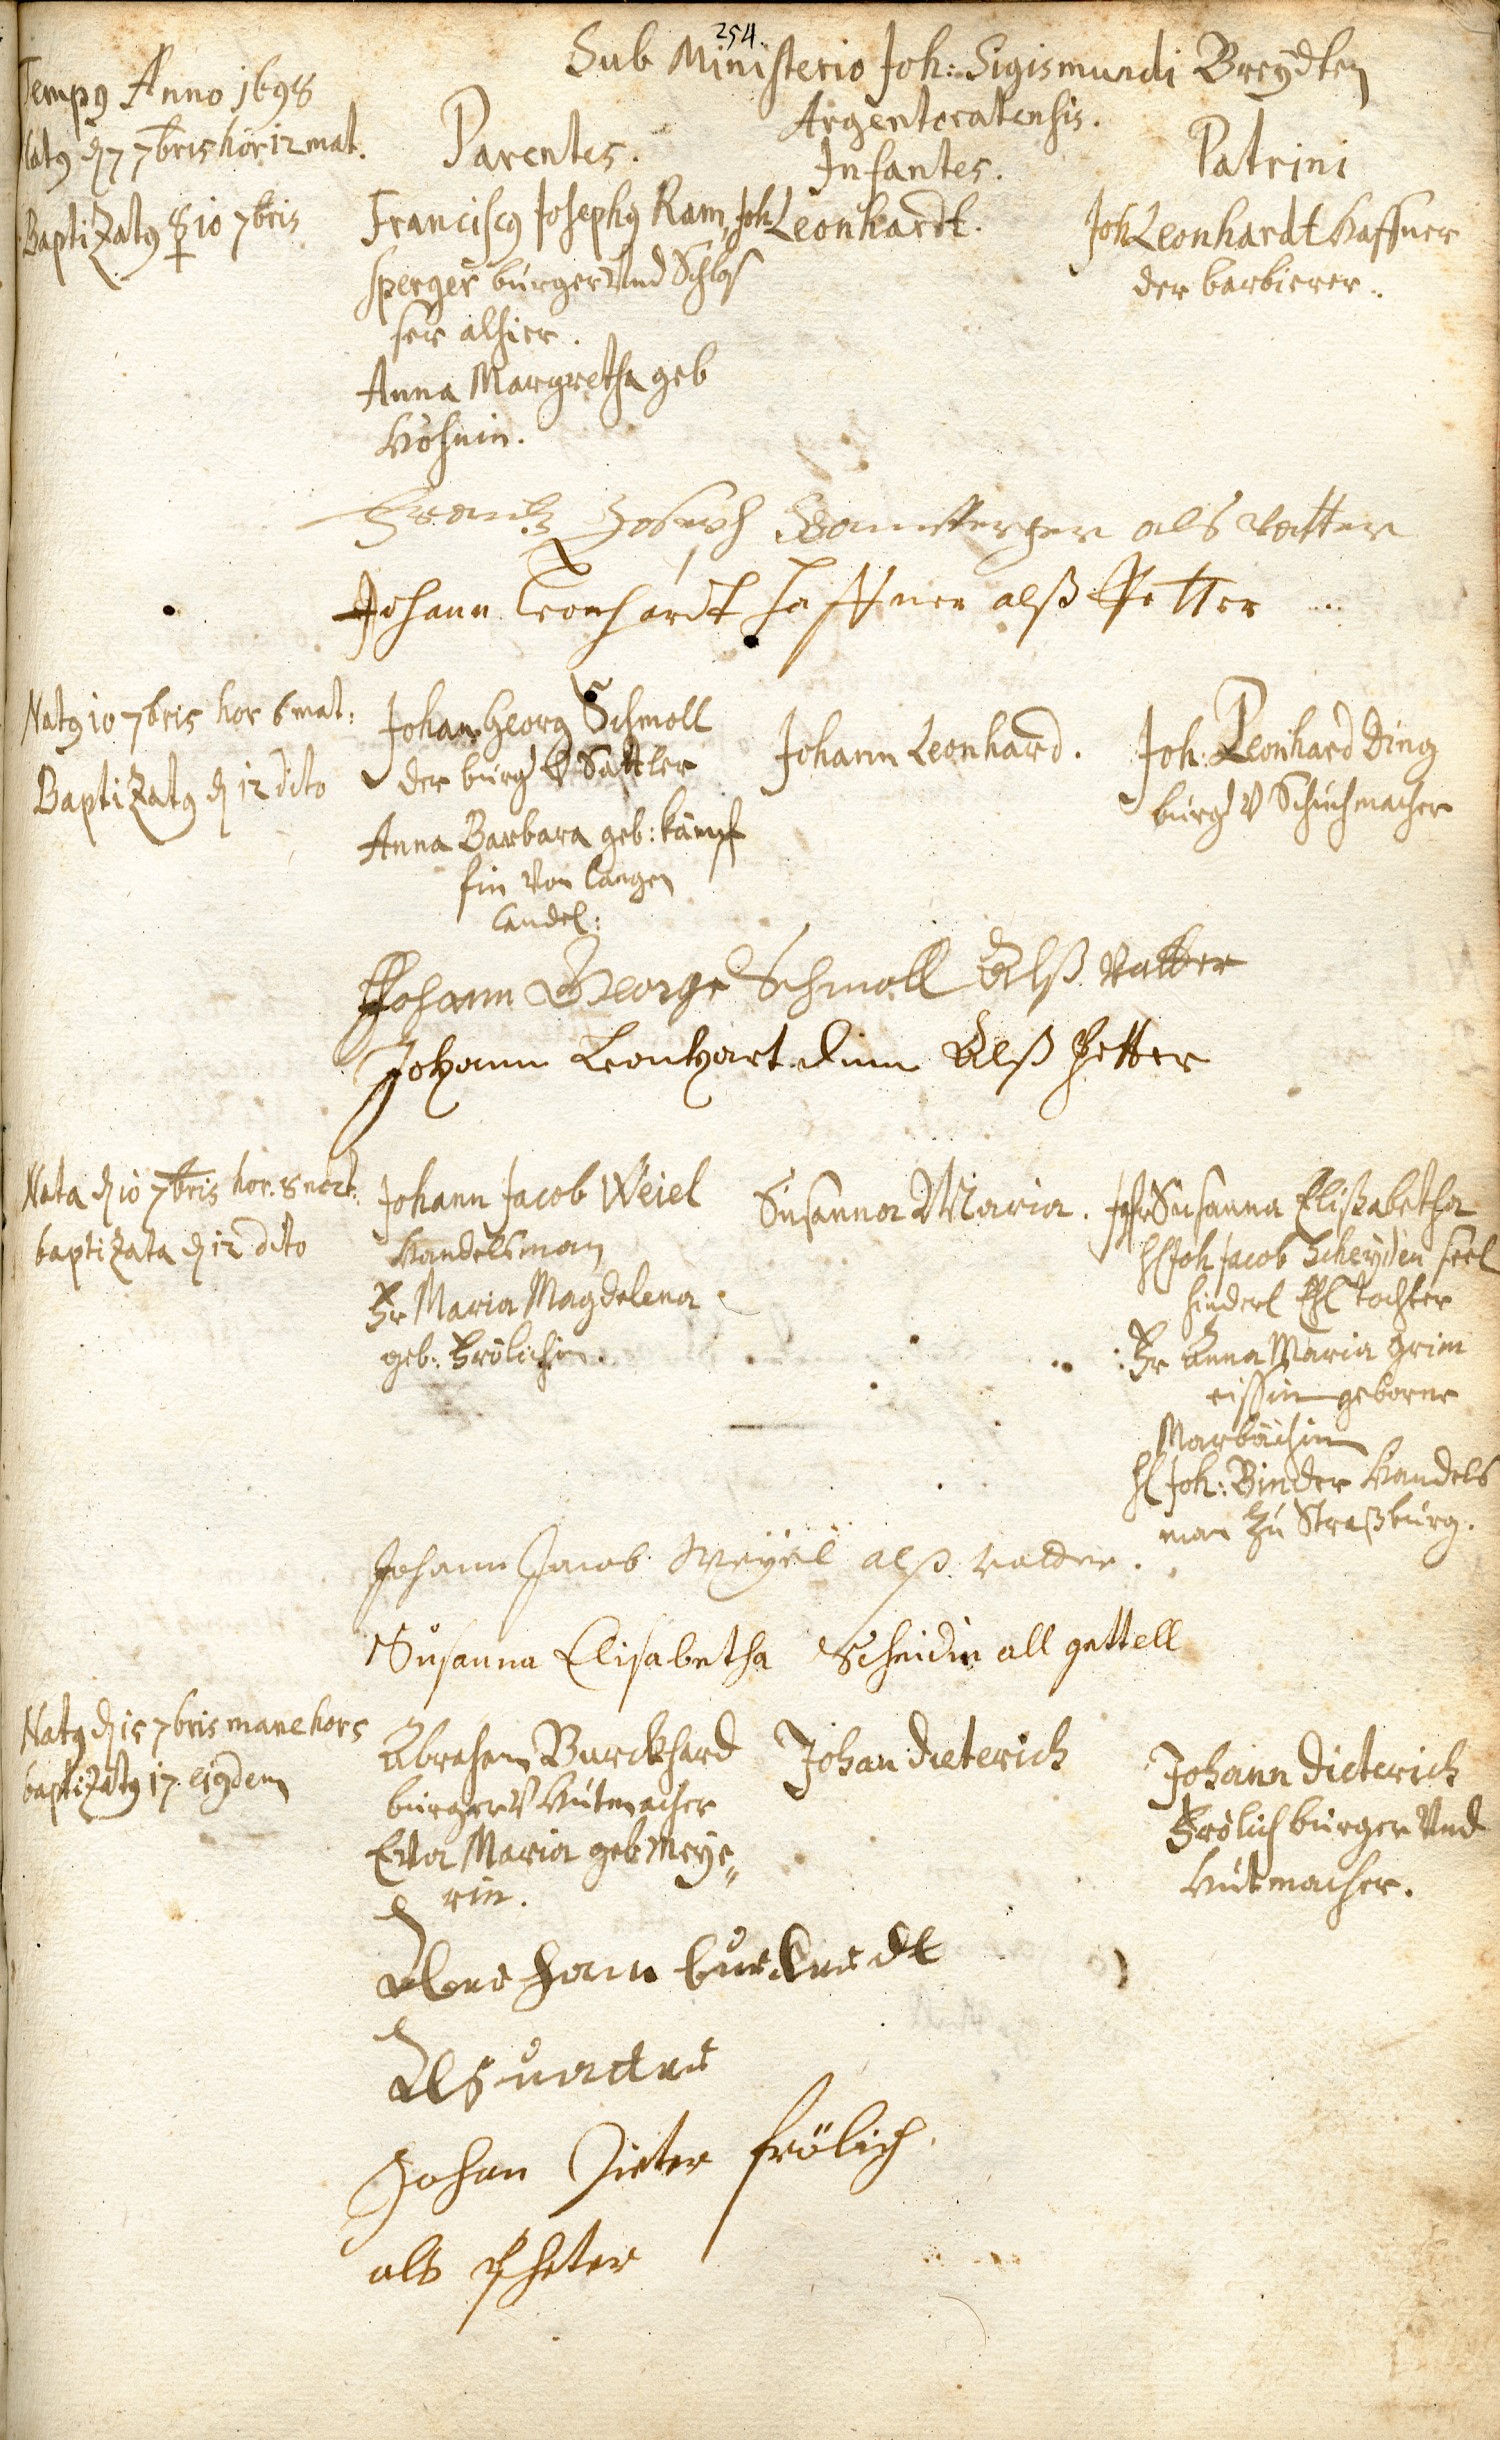 254.
Sub Ministerio Joh: Sigismundi Breydten
Argentoratensis.
Tempus Anno 1698
Parentes.
Infantes.
Patrini
Natus d 7 7bris hor 12 mat.
Baptizatus ♀ 10 7bris
Franciscus Josephus Ram„
sperger burger Und Schlos
ser alhier.
Anna Margretha geb
Höhnin.
Joh Leonhardt.
Joh Leonhardt Haffner
der barbierer.
Frantz Joseph Ramsperger als Vatter
Johann Leonhardt Haffner alß Pfetter
Natus 10 7bris hor 6 mat:
Baptizatus d 12 dito
Johan Georg Schmoll
der burg V Sattler
Anna Barbara geb: Kämpf
fin von Langen
Candel:
Johann Leonhard.
Joh: Leonhard Ding
burg V Schuhmacher
Johann George Schmoll Alß Vatter
Johann Leonhart dinn Alß Petter
Nata d 10 7bris hor. 8 noct:
baptizata d 12 dito
Johann Jacob Weiel
Handelsman
Fr Maria Magdelena
geb: Frölichin.
Susanna Maria.
Jfr Susanna Elißabetha
H Joh Jacob Scheyden seel
hinderl Ehl tochter
Fr Anna Maria Grim
eißin geborne
Marbächin
H Joh: Binder Handels
man zu Straßburg.
Johann Jacob Weyel alß Vatter.
Susanna Elisabetha Scheidin all gettell
Natus d 15 7bris mane hor 5
baptizatus 17 eiusdem
Abraham Burckhard
burger V Hutmacher
Eva Maria geb Meye„
rin.
Johan Dieterich
Johann Dieterich
Frölich burger Und
Hutmacher.
Abraham burckhardt
Als vatter
Johan Dieter frölich
als Pfeter